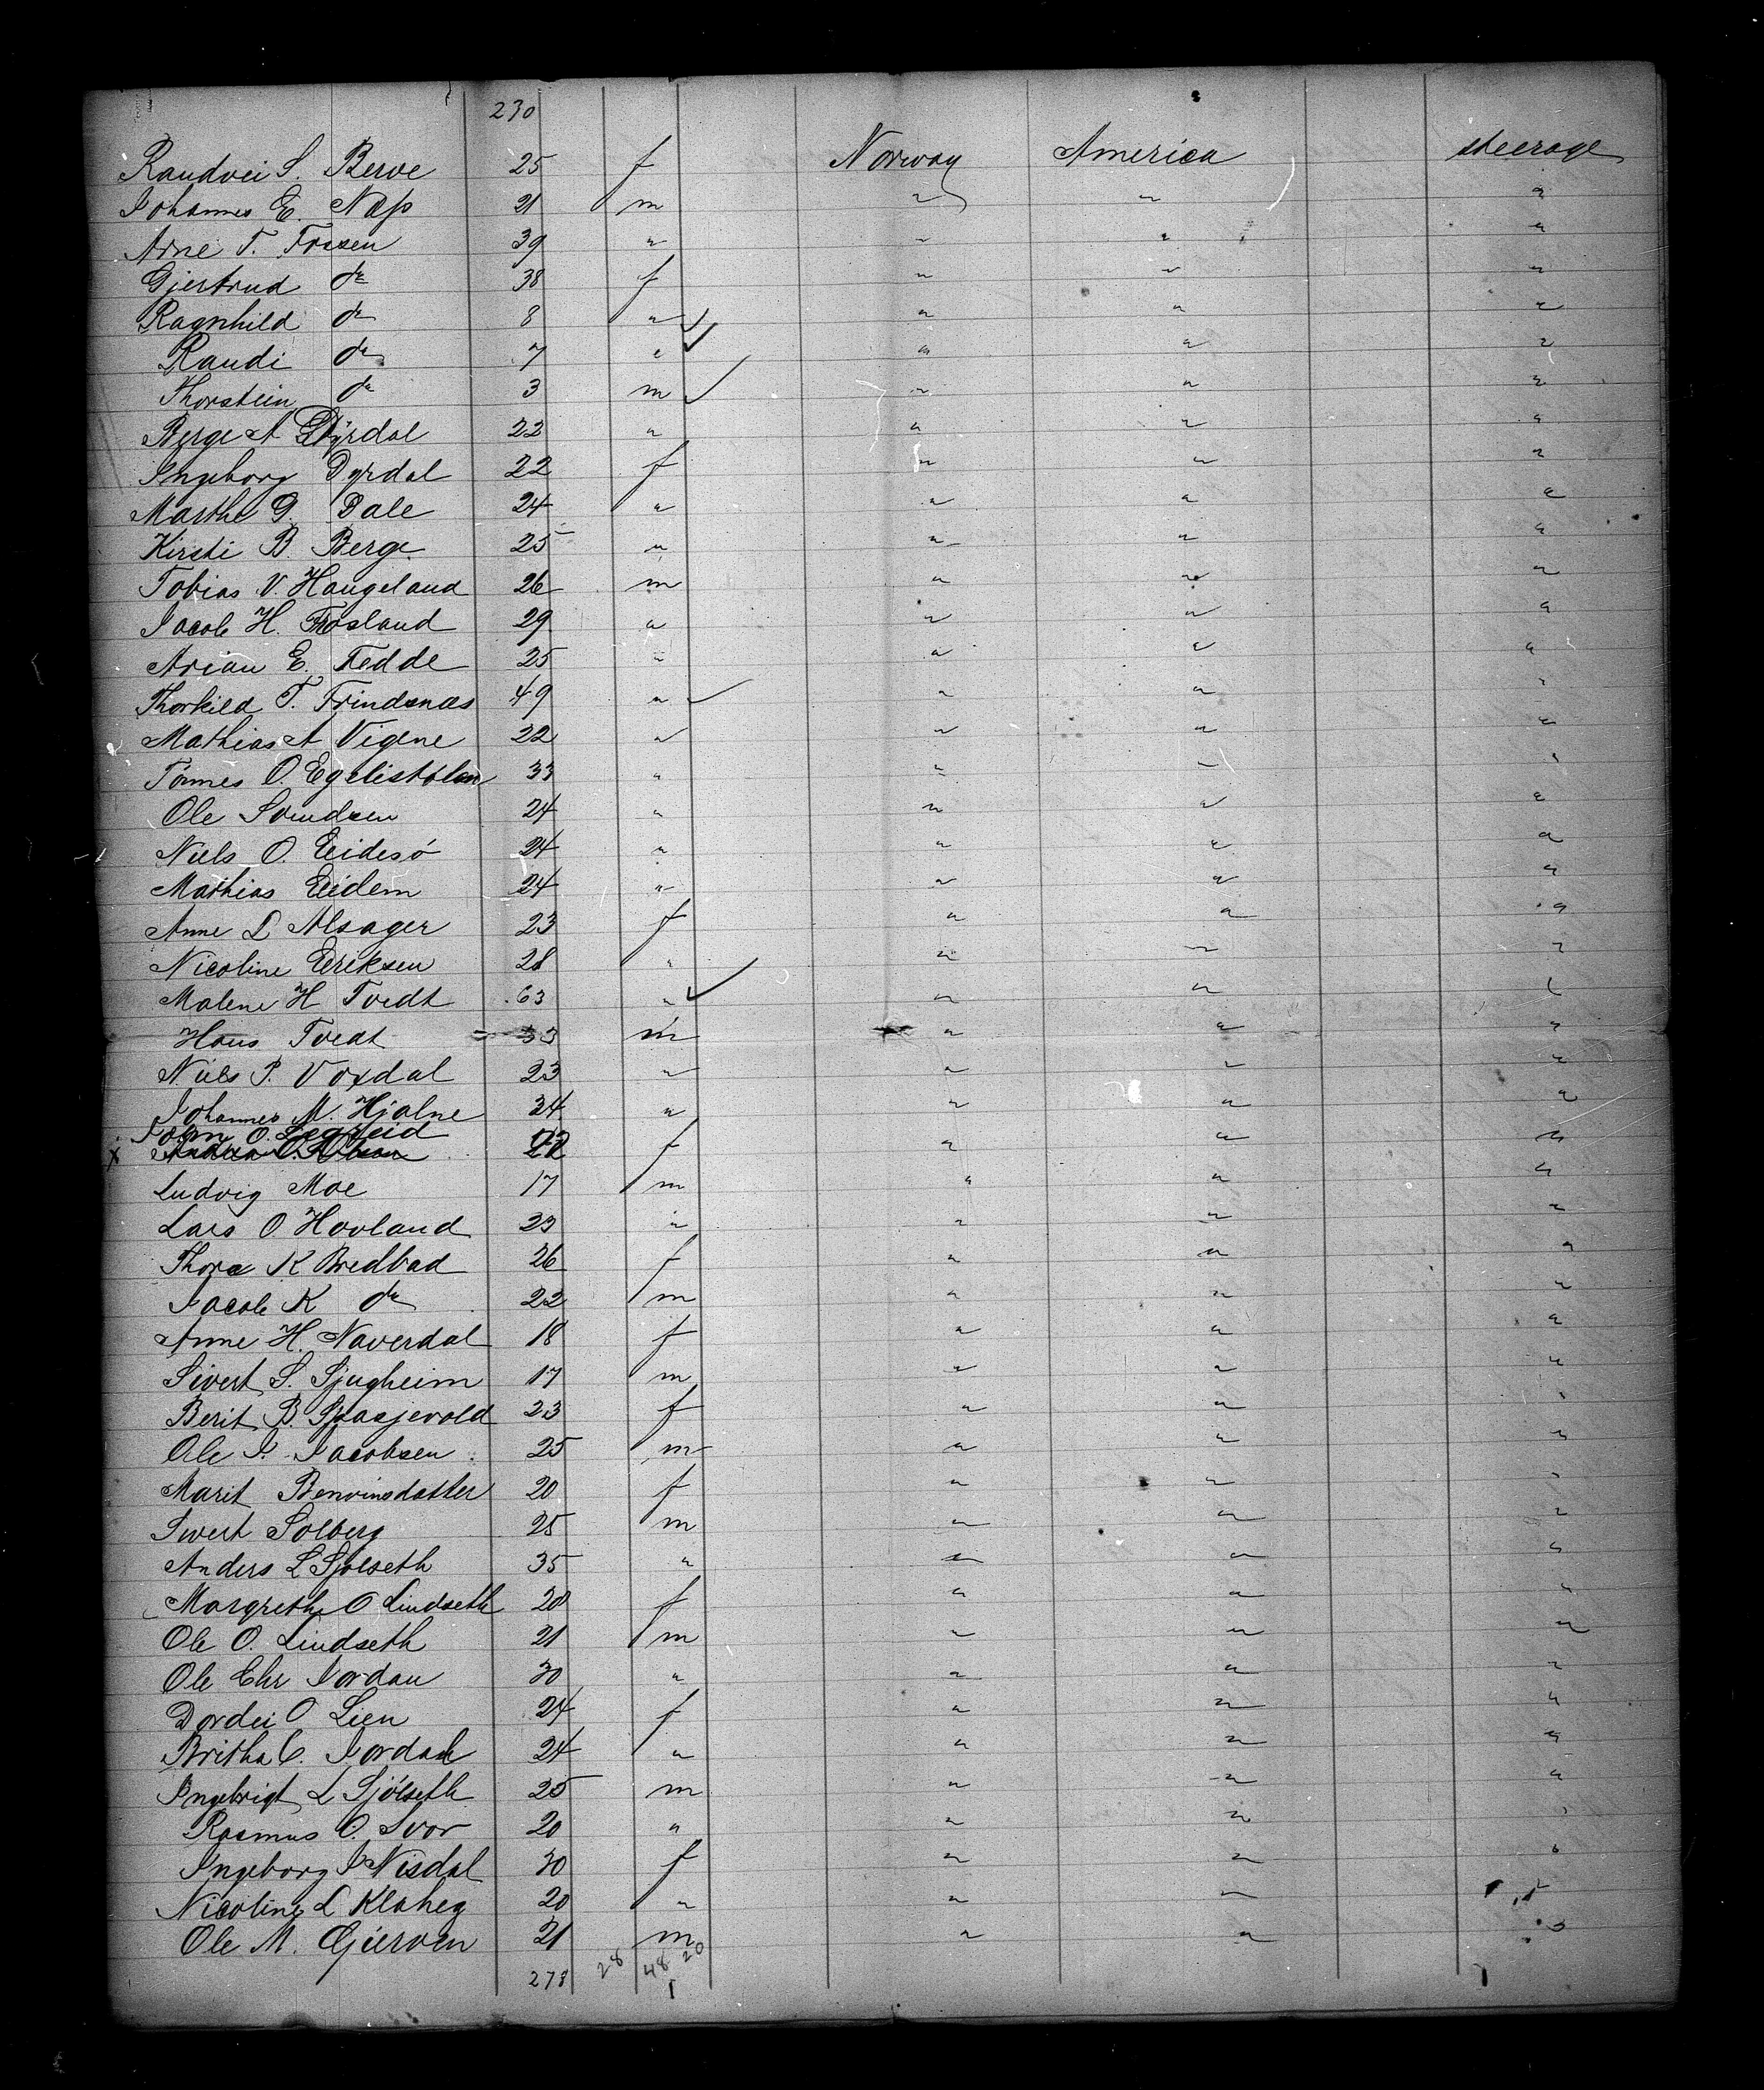 230
Randvei S. Berve 25 f Norway America steerage
Johannes E. Nap 21 m " " "
Arne T. Frosen 39 " " " "
Gjertrud do 38 f " " "
Ragnhild do 8 " " " "
Randi do 7 " " " "
Thorstein do 3 m " " "
Berge A Dyrdal 22 " " " "
Ingeborg Dyrdal 22 f " " "
Marthe G. Dale 24 " " " "
Kirsti B. Berge 25 " " " "
Tobias V. Haugeland 26 m " " "
Jacob H. Frosland 29 " " " "
Arian E. Fedde 25 " " " "
Thorkild T. Trindsnæs 49 " " " "
Mathias A Vigene 22 " " " "
Tönnes O. 33 " " " "
Ole Svendsen 24 " " " "
Niels O. Eidesö 24 " " " "
Mathias Eidem 24 " " " "
Anne L Alsager 23 f " " "
Nicoline Eriksen 28 " " " "
Malene H Tvedt 63 " " " "
Hans Tvedt 33 m " " "
Niels P. Voxdal 23 " " " "
Johannes M. Hjalne 34 " " " "
John O. Legreid
x f " " "
Ludvig Moe 17 m " " "
Lars O Hovland 23 " " " "
Thora K Bredbad 26 f " " "
Jacob K do 22 m " " "
Anne H. Naverdal 18 f " " "
Sivert S. Sjugheim 17 m " " "
Berit B. 23 f " " "
Ole J. Jacobsen 25 m " " "
Marit Benvinsdatter 20 f " " "
Sivert Solberg 25 m " " "
Anders L Sjölseth 35 " " " "
Margrethe O Lindseth 20 f " " "
Ole O. Lindseth 21 m " " "
Ole Chr Jordan 30 " " " "
Dordei O Lien 24 f " " "
Britha C. Jordah 24 " " " "
Ingebrigt L Sjölseth 25 m " " "
Rasmus O. Svor 20 " " " "
Ingeborg J Nisdal 30 f " " "
Nicoline L Klaheg 20 " " " "
Ole M. Gjerven 21 m " " "
278 28 48 20
1